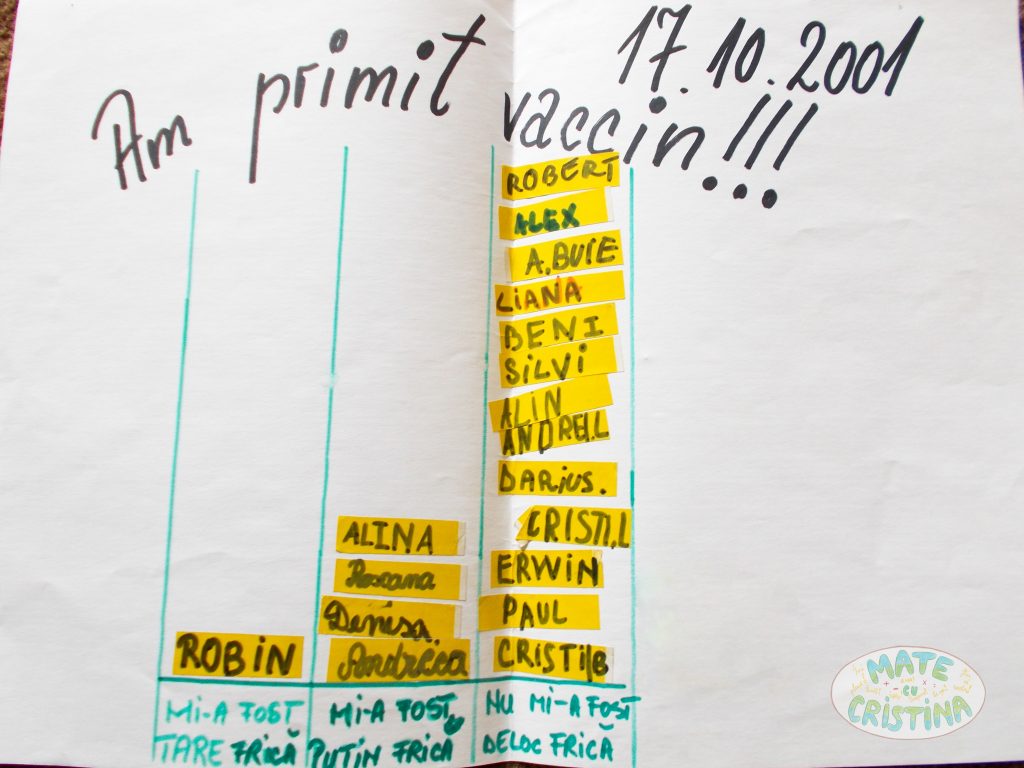 17.10.2001
Am primit vaccin!!!
ROBERT
ALEX
A.BUIE
LIANA
BENI
SILVI
ALIN
ANDREI.L
DARIUS.
CRISTI.L
ERWIN
PAUL
CRISTI B
ALINA
Roxana
Denisa.
Andreea
ROBIN
MI-A FOST
TARE FRICĂ
MI-A FOST
PUTIN FRICĂ
NU MI-A FOST
DELOC FRICĂ
MATE
CU
CRISTINA